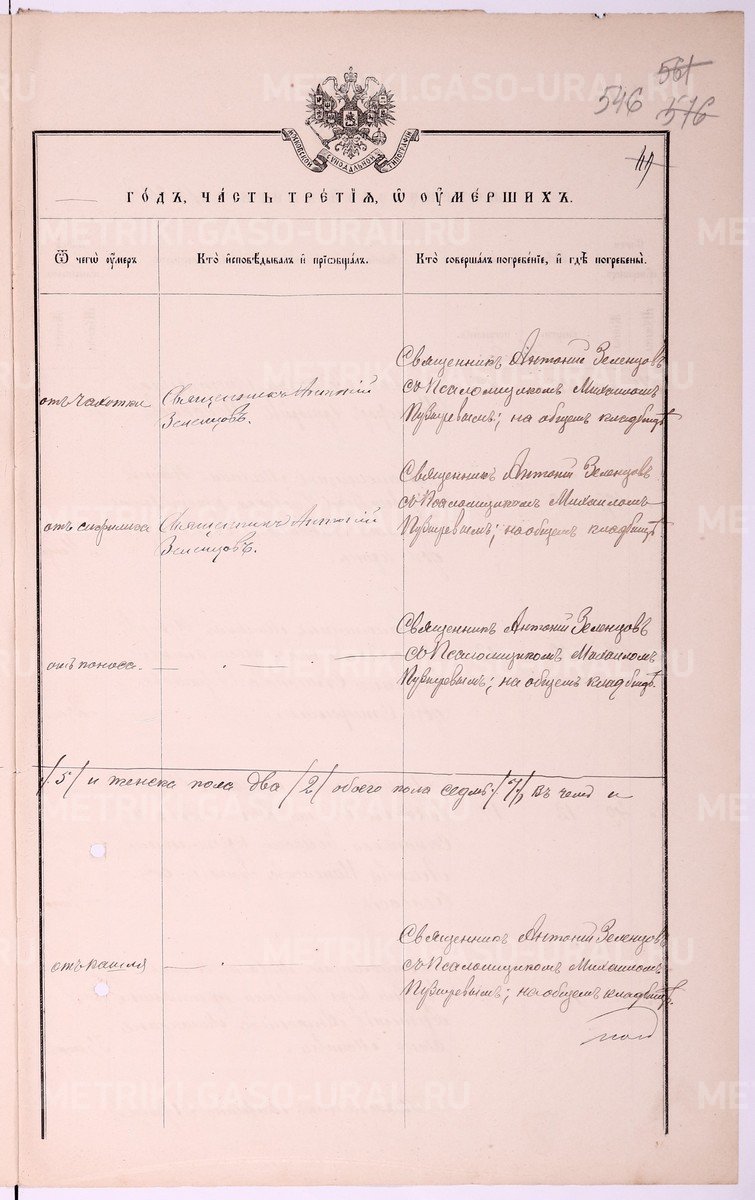 561
546 516
МОСКОВСКОЙ СѴНОДАЛЬНОЙ ТИПОГРАФІИ
ГО́ДЪ, ЧА́СТЬ ТРЕ́ТІЯ, Ѿ ОУМЕ́РШИХЪ.
Ѿ чегѡ̀ оу́меръ
Кто̀ и҆сповѣ́дывалъ и҆ прїѡбща́лъ.
Кто̀ соверша́лъ погребе́нїе, и҆ гдѣ̀ погребены̀.
отъ чахотки
Священникъ Антоній
Зеленцовъ.
Священникъ Антоній Зеленцовъ
съ Псаломщикомъ Михаиломъ
Пузыревымъ; на общемъ кладбищѣ
отъ сифилиса
Священникъ Антоній
Зеленцовъ.
Священникъ Антоній Зеленцовъ
съ Псаломщикомъ Михаиломъ
Пузыревымъ; на общемъ кладбищѣ.
отъ поноса.
Священникъ Антоній Зеленцовъ
съ Псаломщикомъ Михаиломъ
Пузыревымъ; на общемъ кладбищѣ.
/5/ и женска пола два /2/ обоего пола седмь /7/, въ чемъ и
отъ кашля
Священникъ Антоній Зеленцовъ
съ Псаломщикомъ Михаиломъ
Пузыревымъ; на общемъ кладбищѣ.
METRIKI.GASO-URAL.RU